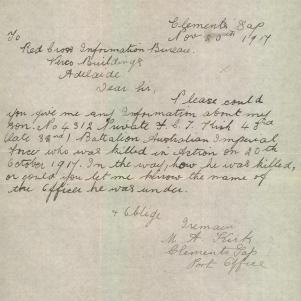 Clements Gap
Nov 20th 1917
To
Red Cross Information Bureau.
Verco Buildings
Adelaide
Dear Sir,
Please could
you give me any Information about my
son. No 4312 Private F. L. T. Kirk 43rd
(late 32nd) Battalion Australian Imperial
Force who was killed in Action on 20th
October 1917. In the way, how he was killed,
or could you let me know the name of
the Officer he was under.
& Oblige
I remain
M. A. Kirk
Clements Gap
Post Office